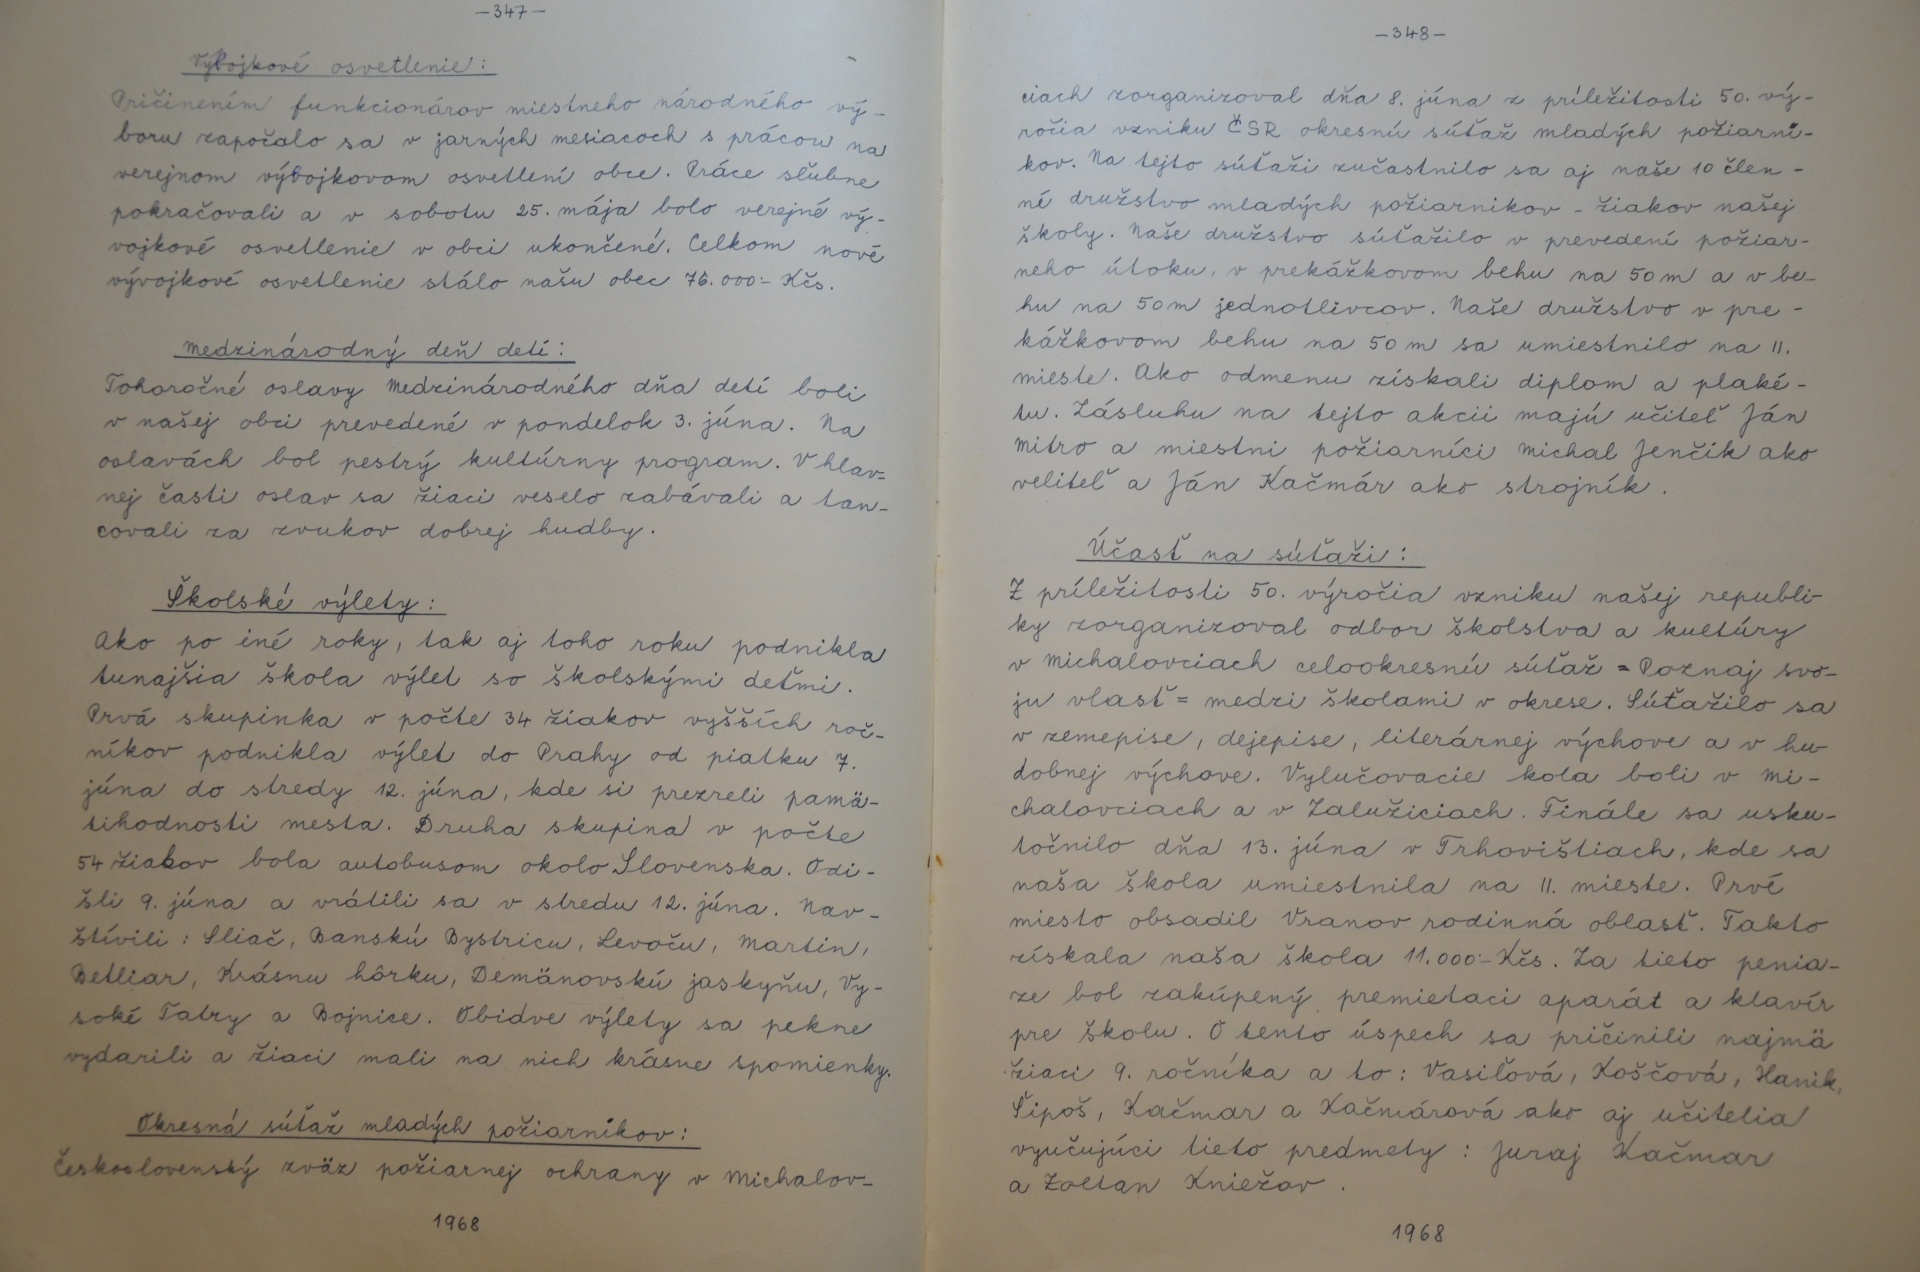 -347-
Výbojkové osvetlenie:
Pričinením funkcionárov miestneho národného vý-
boru započalo sa v jarných mesiacoch s prácou na
verejnom výbojkovom osvetlení obce. Práce slúbne
pokračovali a v sobotu 25. mája bolo verejné vý-
vojkové osvetlenie v obci ukončené. Celkom nové
vývojkové osvetlenie stálo našu obec 76.000:- Kčs.
Medzinárodný deň detí:
Tohoročné oslavy Medzinárodného dňa detí boli
v našej obci prevedené v pondelok 3. júna. Na
oslavách bol pestrý kultúrny program. V hlav-
nej časti osláv sa žiaci veselo zabávali a tan-
covali za zvukov dobrej hudby.
Školské výlety:
Ako po iné roky, tak aj toho roku podnikla
tunajšia škola výlet so školskými deťmi.
Prvá skupinka v počte 34 žiakov vyšších roč-
níkov podnikla výlet do Prahy od piatku 7.
júna do stredy 12. júna, kde si prezreli pamä-
tihodnosti mesta. Druha skupina v počte
54 žiakov bola autobusom okolo Slovenska. Odi-
šli 9. júna a vrátili sa v stredu 12. júna. Nav-
štívili: Sliač, Banskú Bystricu, Levoču, Martin,
Betliar, Krásnu hôrku, Demänovskú jaskyňu, Vy-
soké Tatry a Bojnice. Obidve výlety sa pekne
vydarili a žiaci mali na nich krásne spomienky.
Okresná súťaž mladých požiarnikov:
Československý zväz požiarnej ochrany v Michalov-
1968
-348-
ciach zorganizoval dňa 8. júna z príležitosti 50. vý-
ročia vzniku ČSR okresnú súťaž mladých požiarni-
kov. Na tejto súťaži zučastnilo sa aj naše 10 člen-
né družstvo mladých požiarnikov - žiakov našej
školy. Naše družstvo súťažilo v prevedení požiar-
neho útoku, v prekážkovom behu na 50 m a v be-
hu na 50 m jednotlivcov. Naše družstvo v pre-
kážkovom behu na 50 m sa umiestnilo na II.
mieste. Ako odmenu získali diplom a plaké-
tu. Zásluhu na tejto akcii majú učiteľ Ján
Mitro a miestni požiarníci Michal Jenčík ako
veliteľ a Ján Kačmár ako strojník.
Účasť na súťaži:
Z príležitosti 50. výročia vzniku našej republi-
ky zorganizoval odbor školstva a kultúry
v Michalovciach celookresnú súťaž = Poznaj svo-
ju vlasť = medzi školami v okrese. Súťažilo sa
v zemepise, dejepise, literárnej výchove a v hu-
dobnej výchove. Vylučovacie kola boli v Mi-
chalovciach a v Zalužiciach. Finále sa usku-
točnilo dňa 13. júna v Trhovištiach, kde sa
naša škola umiestnila na II. mieste. Prvé
miesto obsadil Vranov rodinná oblasť. Takto
získala naša škola 11.000:- Kčs. Za tieto penia-
ze bol zakúpený premietaci aparát a klavír
pre školu. O tento úspech sa pričinili najmä
žiaci 9. ročníka a to: Vasiľová, Koščová, Hanik,
Šipoš, Kačmar a Kačmárová ako aj učitelia
vyučujúci tieto predmety: Juraj Kačmar
a Zoltan Kniežov.
1968